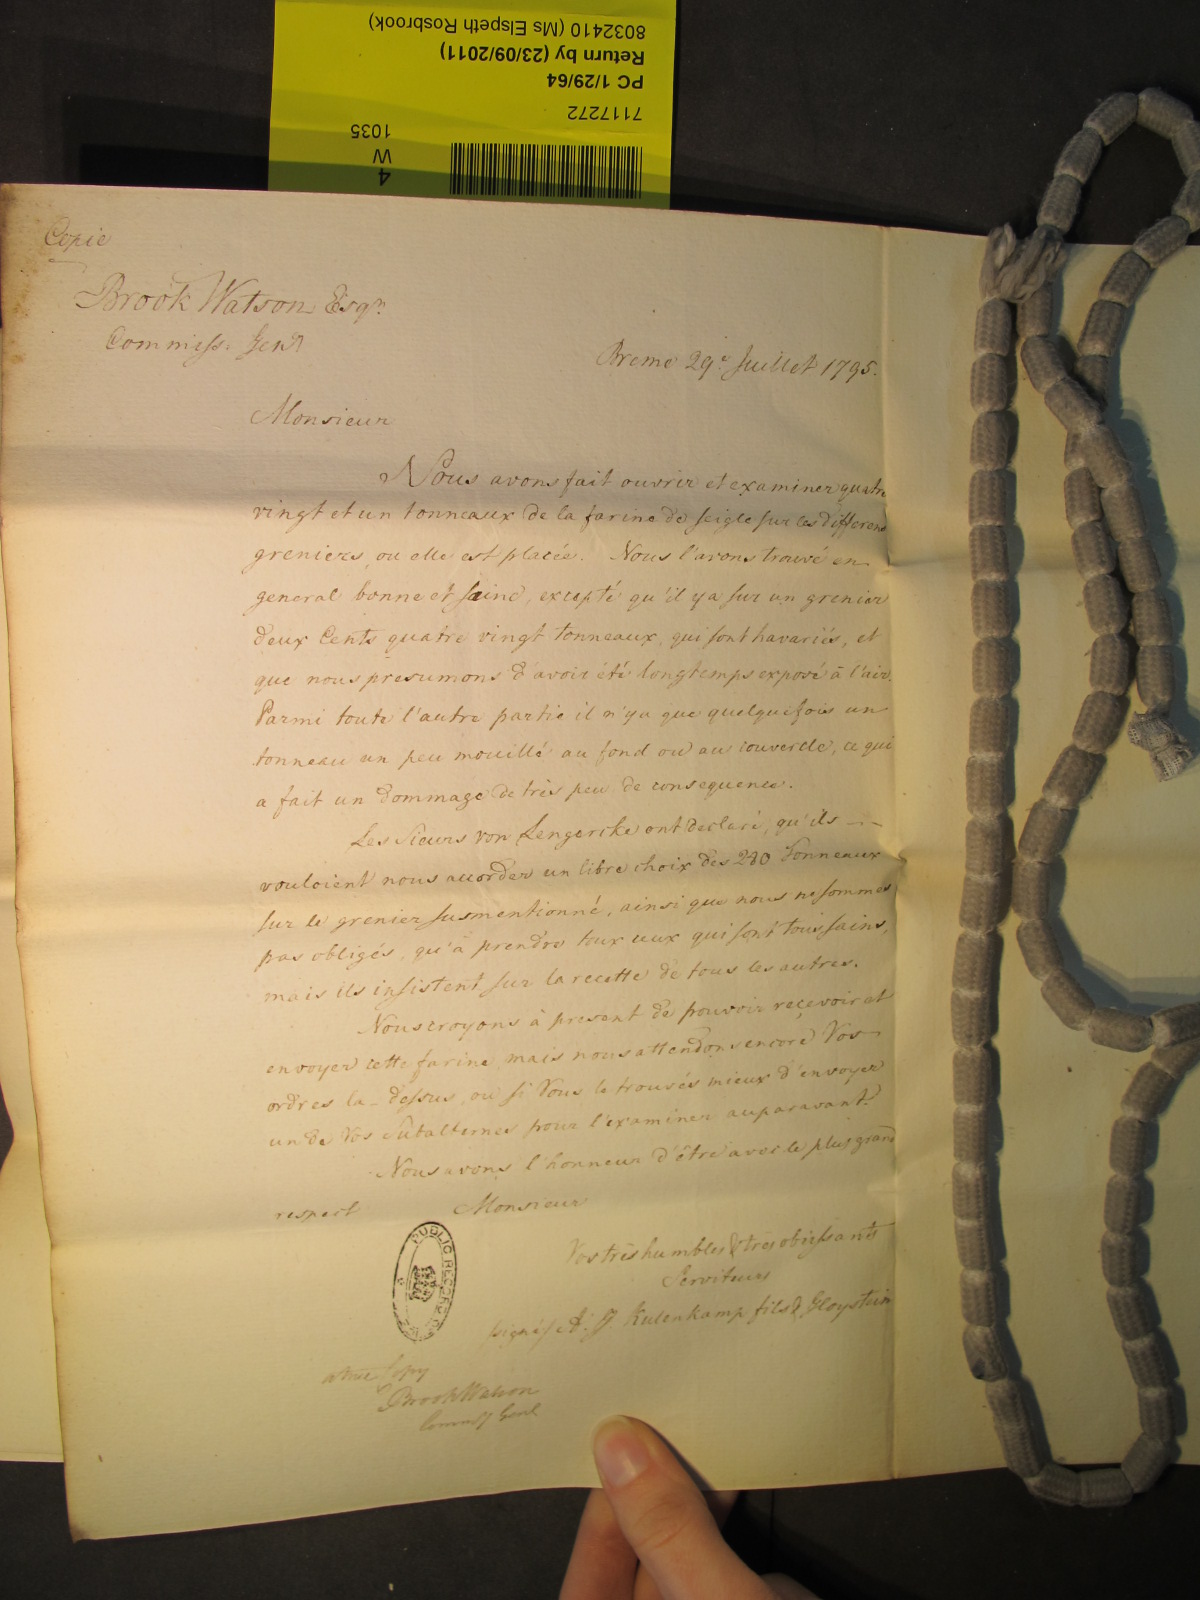 8032410 (Ms Elspeth Rosbrook)
Return by (23/09/2011)
PC 1/29/64
7117272
1035
W
4
Copie
Brook Watson Esqr.
Commiss: Genl
Breme 29e Juillet 1795.
Monsieur
Nous avons fait ouvrir et examiner quatre
vingt et un tonneaux de la farine de seigle sur les differens
greniers, ou elle est placée. Nous l'avons trouvé en
general bonne et saine, excepté qu'il y a sur un grenier
deux Cents quatre vingt tonneaux, qui sont havariés, et
que nous presumons d'avoir été longtemps exposé à l'air.
Parmi toute l'autre partie il n'y a que quelquefois un
tonneau un peu mouillé au fond ou au couvercle, ce qui
a fait un dommage de très peu de consequence.
Les Sieurs von Lengercke ont declaré, qu'ils
vouloient nous accorder un libre choix des 280 Tonneaux
sur le grenier susmentionné, ainsi que nous ne sommes
pas obligés, qu'à prendre tous ceux qui sont tous sains,
mais ils insistent sur la recette de tous les autres.
Nous croyons à present de pouvoir reçevoir et
envoyer cette farine, mais nous attendons encore Vos
ordres la-dessus, ou si Vous le trouvés mieux d'envoyer
un de Vos Subalternes pour l'examiner auparavant.
Nous avons l'honneur d'être avec le plus grand
respect Monsieur
Vos très humbles & tres obeissants
Serviteurs
signés A: Kulenkamp fils & Gloystein
PUBLIC RECORD
a true Copy
Brook Watson
Commssy Genl